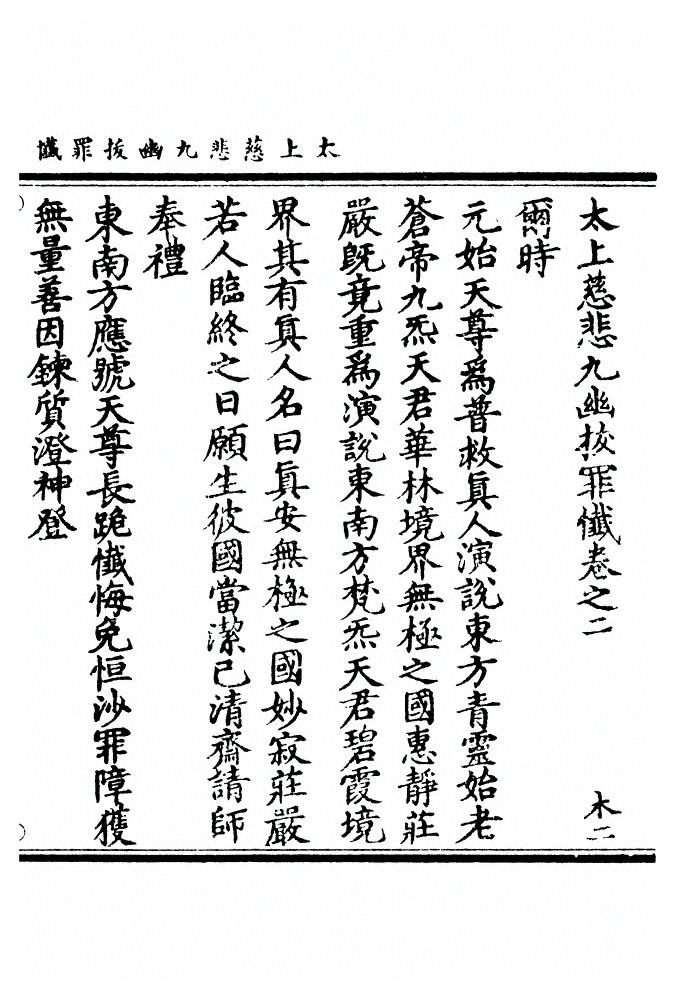 太上慈悲九幽拔罪懺
太上慈悲九幽拔罪懺卷之二 木二
爾時
元始天尊爲普救眞人演說東方青靈始老
蒼帝九炁天君華林境界無極之國惠靜莊
嚴旣竟重爲演說東南方梵炁天君碧霞境
界其有眞人名曰眞安無極之國妙寂莊嚴
若人臨終之日願生彼國當潔己清齋請師
奉禮
東南方應號天尊長跪懺悔免恒沙罪障獲
無量善因鍊質澄神登